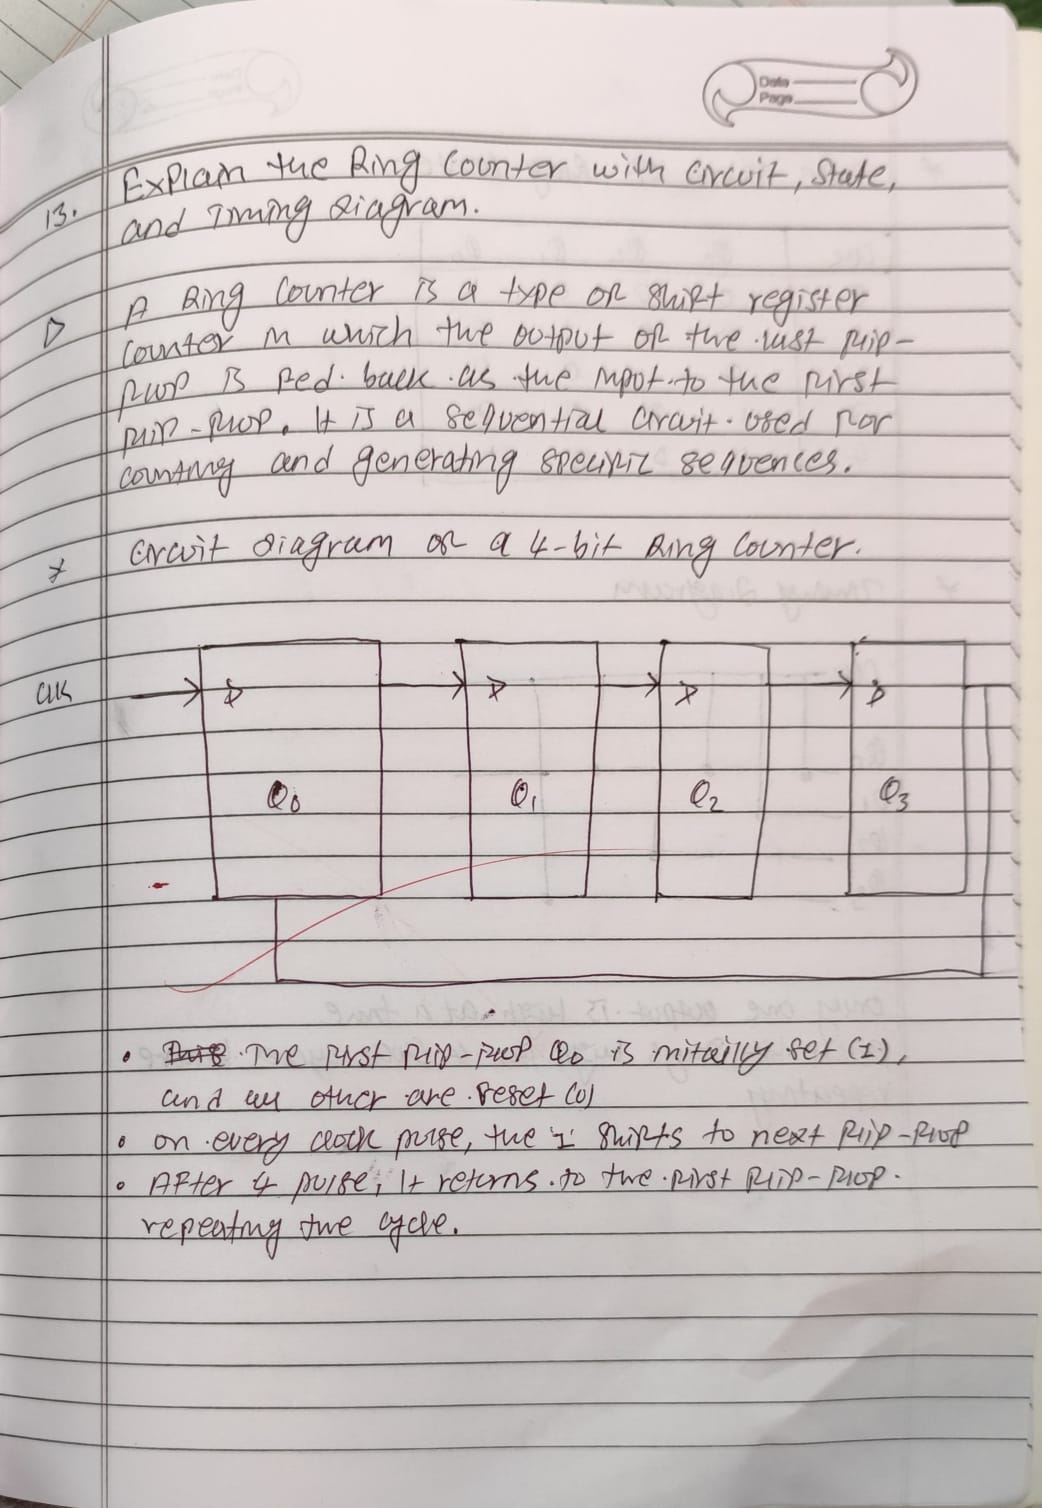 Date
Page
13. Explain the Ring Counter with circuit, state,
and Timing diagram.
A Ring Counter is a type of shift register
counter in which the output of the last flip-
flop is fed back as the input to the first
flip-flop. It is a sequential circuit used for
counting and generating specific sequences.
* Circuit diagram of a 4-bit Ring Counter.
CLK D D D D
Q0 Q1 Q2 Q3
• The first flip-flop Q0 is initailly set (1),
and all other are reset (0)
• on every clock pulse, the '1' shifts to next flip-flop
• After 4 pulse, it returns to the first flip-flop.
repeating the cycle.